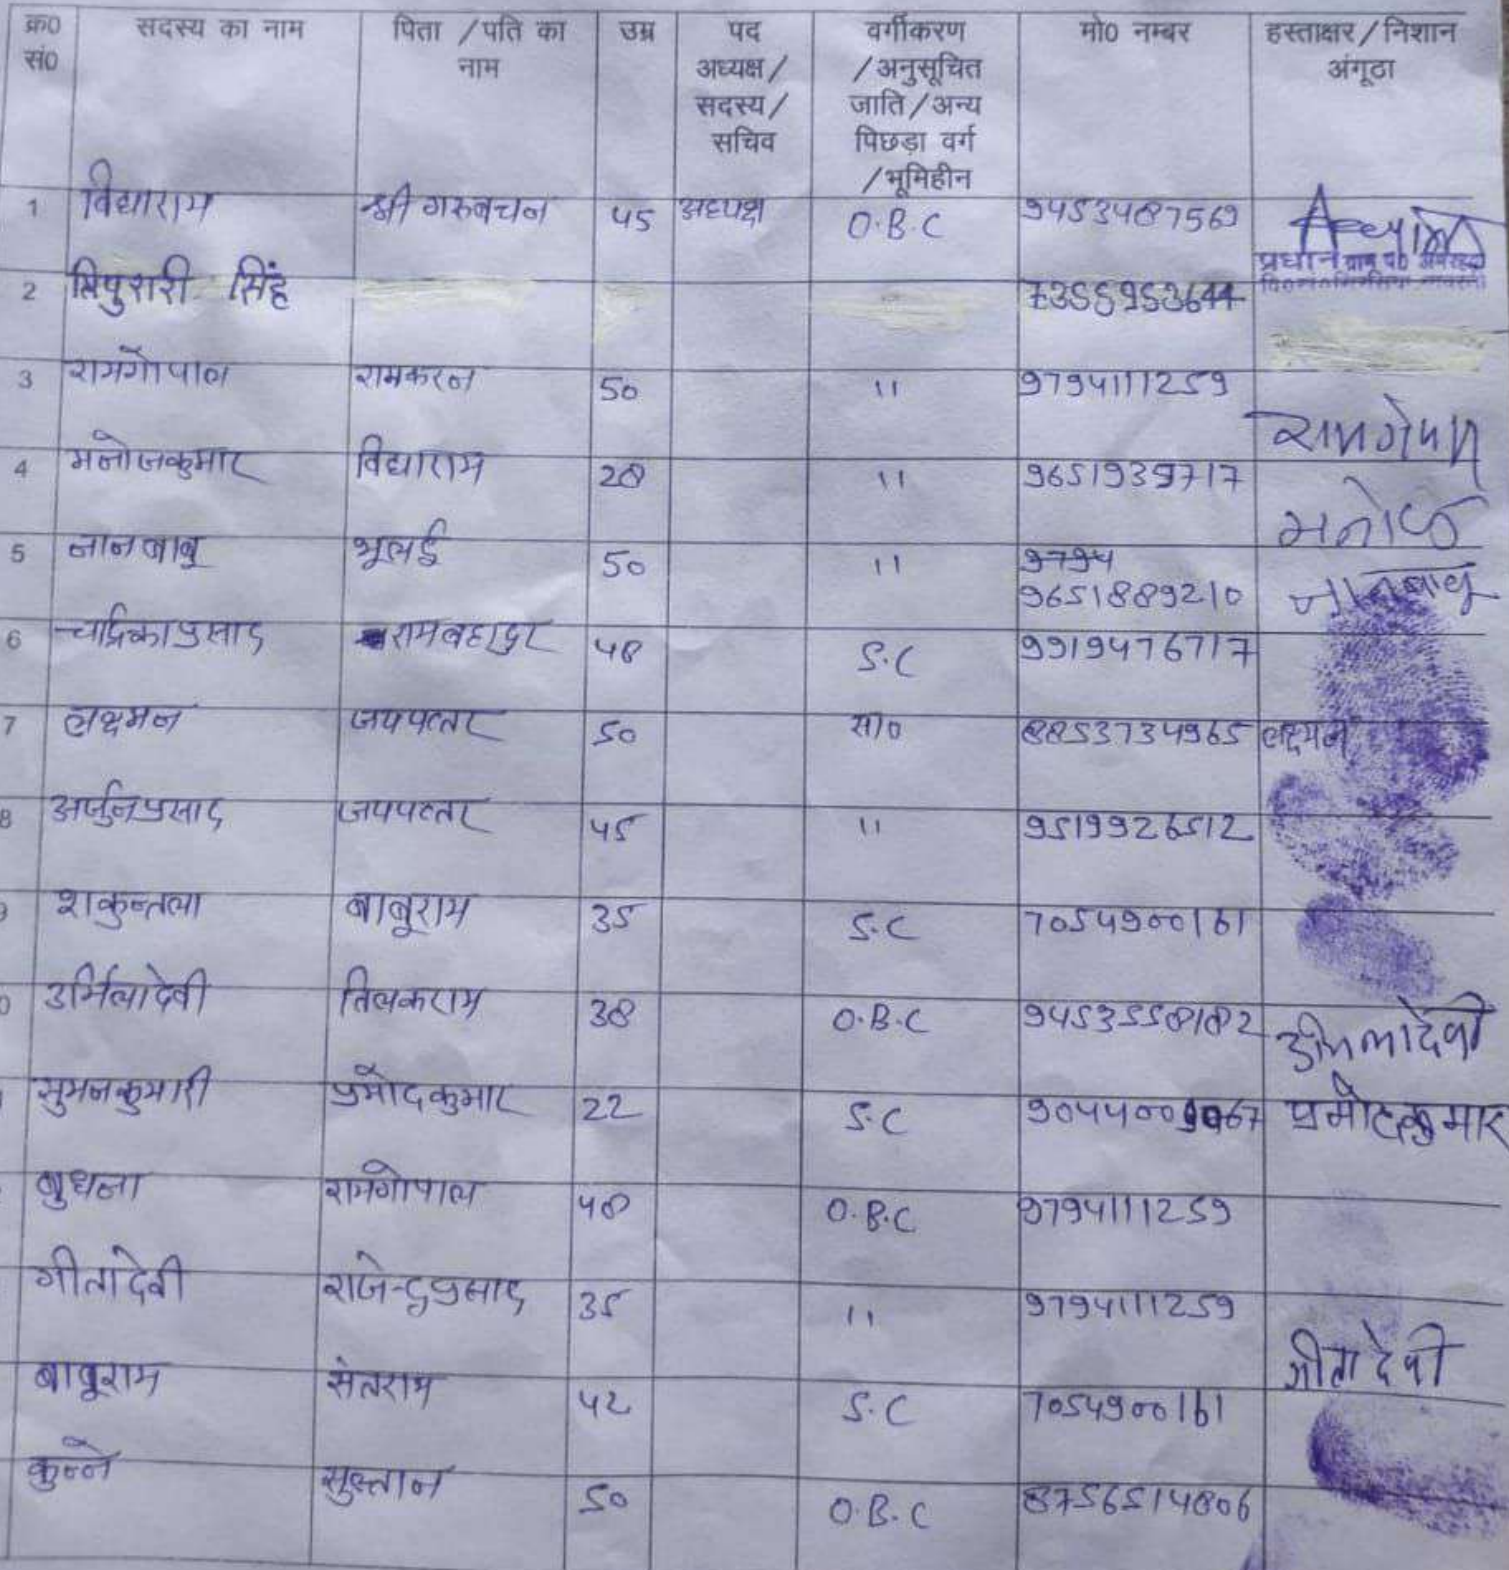 क्र0 सं0 सदस्य का नाम पिता / पति का नाम उम्र पद अध्यक्ष / सदस्य / सचिव वर्गीकरण / अनुसूचित जाति / अन्य पिछड़ा वर्ग / भूमिहीन मो0 नम्बर हस्ताक्षर / निशान अंगूठा
1 विद्याराम श्री गरुबचन 45 अध्यक्ष O.B.C 9453487569
प्रधान
2 त्रिपुरारी सिंह 7355953644
3 रामगोपाल रामकरन 50 11 9794111259 रामगोपाल
4 मनोजकुमार विद्याराम 28 11 9651939717 मनोज
5 जानबाबू भूलई 50 11 9794
9651889210 जानबाबू
6 चन्द्रिकाप्रसाद रामबहादुर 48 S.C 9919476717
7 लक्ष्मन जयपत्तर 50 सा0 8853734965 लक्ष्मन
8 अर्जुनप्रसाद जयपत्तर 45 11 9519926512
शकुन्तला बाबूराम 35 S.C 7054900161
उर्मिलादेवी तिलकराम 38 O.B.C 9453558182 उर्मिलादेवी
सुमनकुमारी प्रमोदकुमार 22 S.C प्रमोदकुमार
बुधना रामगोपाल 48 O.B.C 9794111259
गीतादेवी राजेन्द्रप्रसाद 35 11 9794111259 गीता देवी
बाबूराम संतराम 42 S.C 7054900161
कुन्ने सुल्तान 50 O.B.C 8756514806